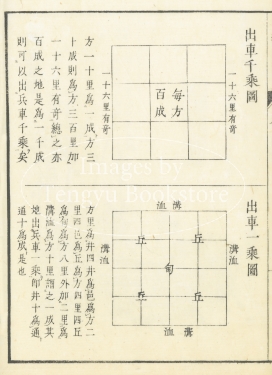 出車千乘圖
一十六里有竒
每方
百成
一十六里有竒
方一十里爲一成方三
十成則方三百里加
一十六里有竒總之亦
百成之地是爲一千成
則可以出兵車千乘矣
出車一乘圖
溝洫
溝洫
丘
丘
甸
丘
丘
溝洫
溝洫
方里爲井四井爲邑爲方二
里四邑爲丘爲方四里四丘
爲甸爲方八里外加二里爲
溝洫爲方十里謂之一成其
地出兵車一乘即井十爲通
通十爲成是也
Images by
Bookstore